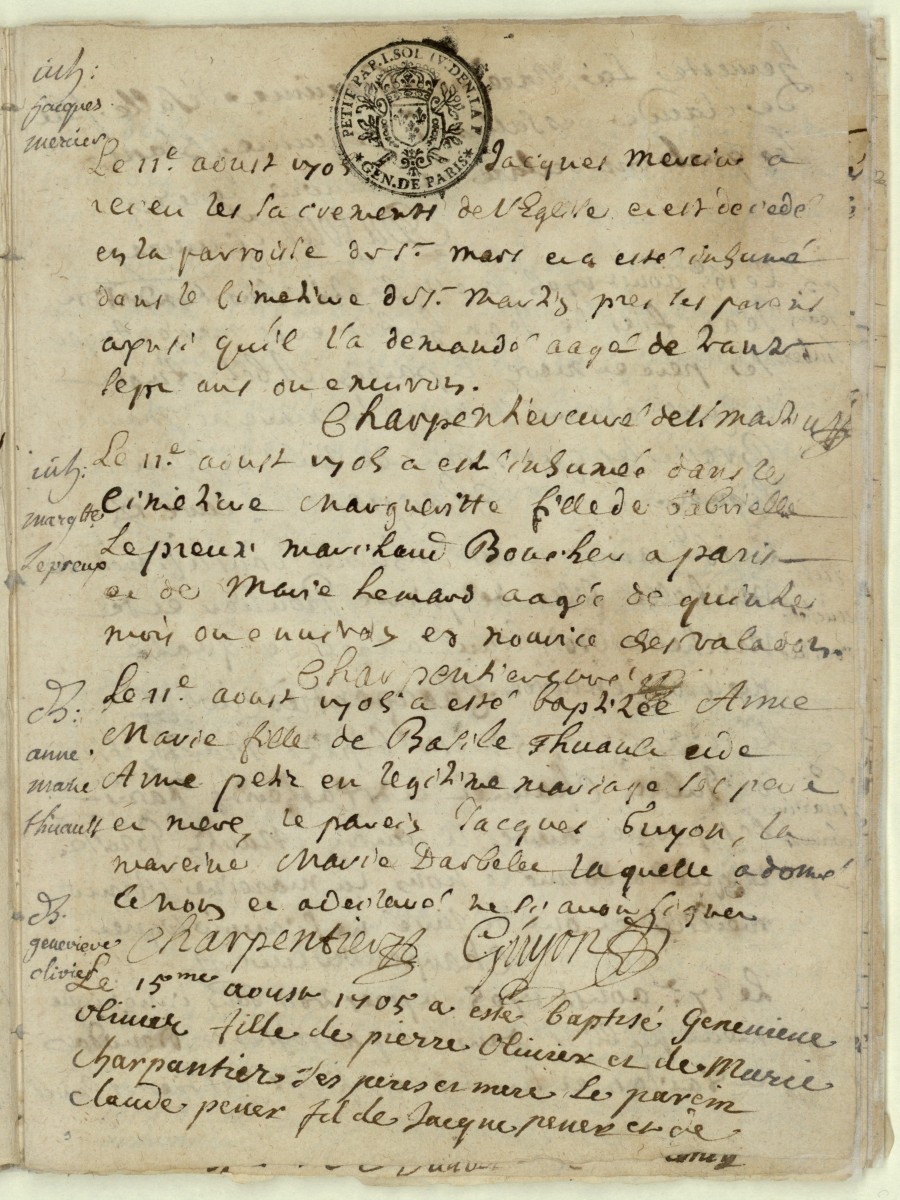 PETIT PAP. 1. SOL IV. DEN. LA F
GEN. DE PARIS
inh:
jacques
mercier
Le 11e aoust 1705 Jacques mercier a
receu les sacrements de l'Eglise et est decedé
en la parroisse de St. mars et a esté inhumé
dans le Cimetiere de St. Martin pres ses parens
ainsi qu'il l'a demandé aagé de trante
sept ans ou environ.
Charpentier curé de St martin
inh:
margtte
Lepreux
Le 11e aoust 1705 a esté inhumée dans le
Cimetiere Margueritte fille de Gabrielle
Lepreux marchand Boucher a paris
et de Marie hemard aagée de quinze
mois ou environ en nourice ches valadon.
Charpentier curé
B:
anne
marie
thuault
Le 11e aoust 1705 a esté baptizée Anne
Marie fille de Basile Thuault et de
Anne petit en legitime mariage ses pere
et mere, le parein Jacques Guyon, la
mareine Marie Darbelle laquelle a donné
le nom et a declaré ne sçavoir signer
Charpentier Guyon
B.
genevieve
olivier
Le 15me aoust 1705 a esté baptisé Genevieve
Olivier fille de pierre Olivier et de Marie
Charpantier ses peres et mere Le parein
Claude pener fil de Jacque pener et de